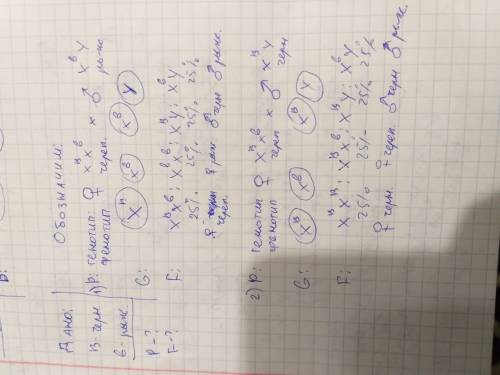 D:
Дано:
B - черн
b - рыж.
P - ?
F - ?
Обозначим:
1) P: генотип ♀ XᴮXᵇ × ♂ XᵇY
фенотип череп. рыж
G: Xᴮ Xᵇ Xᵇ Y
F: XᴮXᵇ : XᵇXᵇ : XᴮY : XᵇY
25% 25% 25% 25%
♀ череп. ♀ рыж ♂ черн ♂ рыж.
2) P: генотип ♀ XᴮXᵇ × ♂ XᴮY
фенотип череп черн
G: Xᴮ Xᵇ Xᴮ Y
F: XᴮXᴮ : XᴮXᵇ : XᴮY : XᵇY
25% 25% 25% 25%
♀ черн ♀ череп. ♂ черн ♂ рыж.